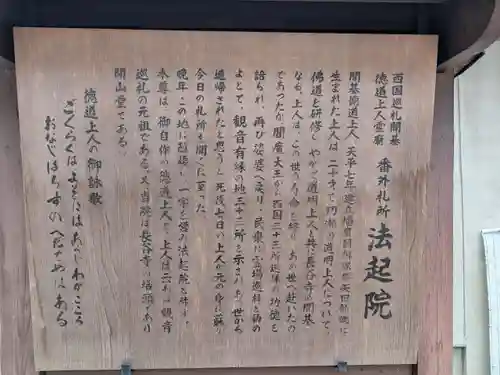 西国巡礼開基
徳道上人霊廟
番外札所 法起院
開基徳道上人 天平七年
生まれた上人は二十才で初瀬の道明上人について、
佛道を研修しやがて道明上人と共に長谷寺の開基
なる、上人は、この世の寿命を終り、あの世へ赴いたの
であったが閻魔大王から西国三十三所巡拝の功徳を
語られ、再び娑婆へ戻り、民衆に霊場巡拝を勧め
よとて、観音有縁の地三十三所を示され、あの世から
追帰されたと思うと死後七日の上人が元の身に蘇り
今日の札所を開くに至った。
晩年この地に隠棲し、一宇を営み法起院と称す。
本尊は、御自作の徳道上人で、上人は三十三観音
巡礼の元祖である。又当院は長谷寺の塔頭であり
開山堂である。
徳道上人の御詠歌
ごくらくはよそにはあらじわがこころ
おなじはちすのへだてやはある